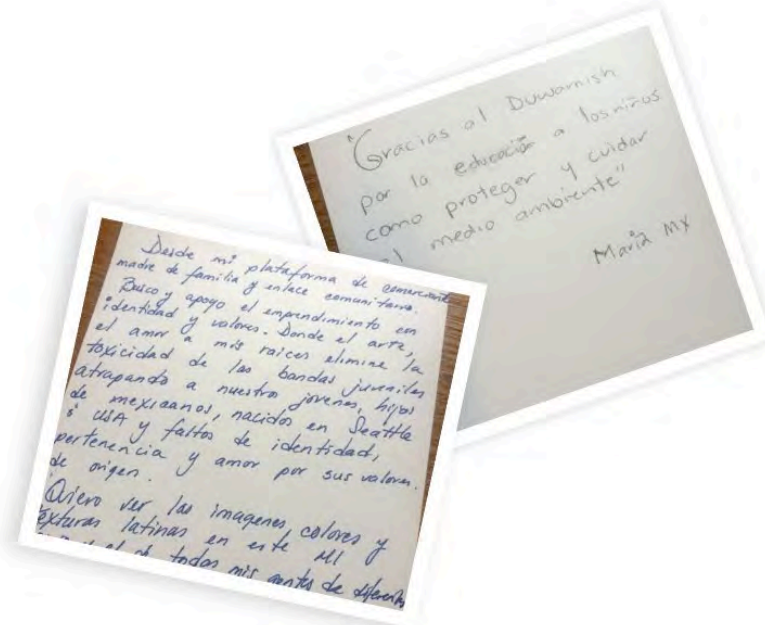 "Gracias al Duwamish
por la educación a los niños
como proteger y cuidar
el medio ambiente"
Maria MX
Desde mi plataforma de comerciante
madre de familia y enlace comunitario.
Busco y apoyo el emprendimiento en
identidad y valores. Donde el arte,
el amor a mis raices elimine la
toxicidad de las bandas juveniles
atrapando a nuestros jovenes, hijos
de mexicanos, nacidos en Seattle
USA y faltos de identidad,
pertenencia y amor por sus valores
de origen.
Quiero ver las imagenes, colores y
texturas latinas en este MI
de todas mis gentes de diferentes